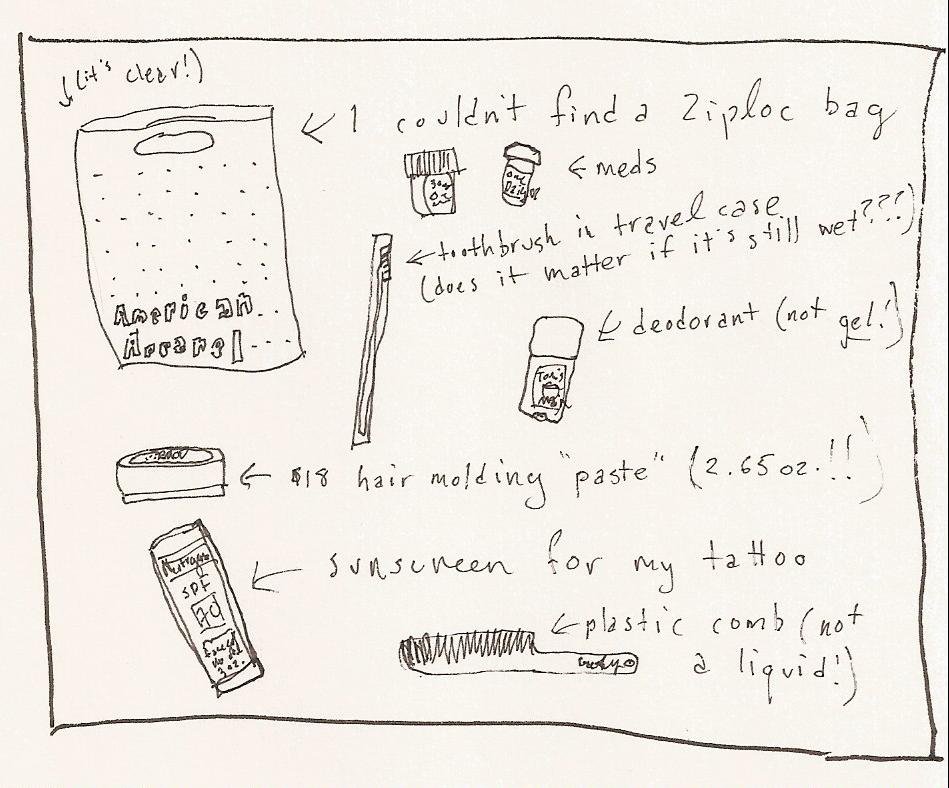 (it's clear!)
I couldn't find a Ziploc bag
meds
toothbrush in travel case
(does it matter if it's still wet???)
American
Apparel
deodorant (not gel!)
Tom's
$18 hair molding "paste" (2.65oz.!!)
sunscreen for my tattoo
Neutrogena
SPF
70
plastic comb (not
a liquid!)